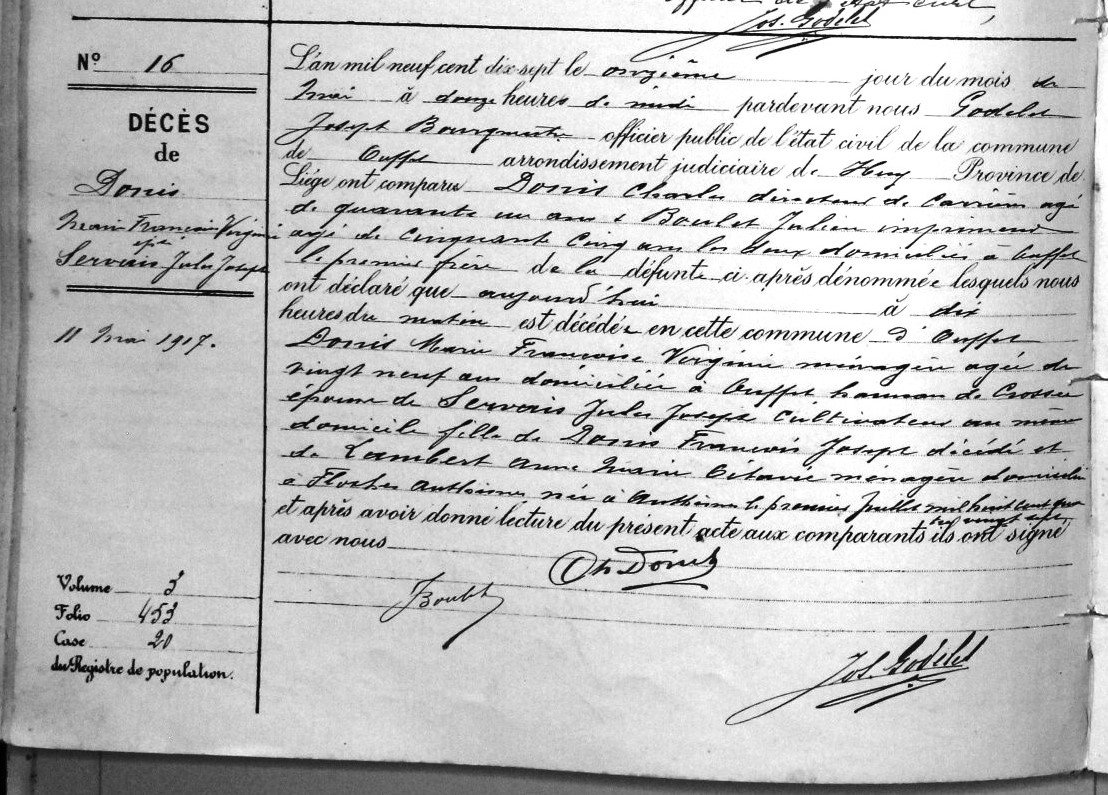 officier de l'état civil,
Jos. Godelet
N° 16
DÉCÈS
de
Donis
Marie Françoise Virginie
épse
Servais Jules Joseph
11 Mai 1917.
Volume 3
Folio 453
Case 20
du Registre de population.
L'an mil neuf cent dix-sept le onzième jour du mois de
Mai à douze heures de midi pardevant nous Godelet
Joseph Bourgmestre officier public de l'état civil de la commune
de Ouffet arrondissement judiciaire de Huy Province de
Liége ont comparu Donis Charles directeur de carrière agé
de quarante un ans & Boulet Julien imprimeur
agé de cinquante cinq ans les deux domiciliés à Ouffet
le premier frère de la défunte ci après dénommée lesquels nous
ont déclaré que aujourd'hui à dix
heures du matin est décédée en cette commune d'Ouffet
Donis Marie Françoise Virginie ménagère agée de
vingt neuf ans domiciliée à Ouffet hameau de
épouse de Servais Jules Joseph cultivateur au même
domicile fille de Donis François Joseph décédé et
de Lambert Anne Marie Octavie ménagère domiciliée
à Anthisnes née à Anthisnes le premier juillet mil huit cent qua
tre vingt sept,
et après avoir donné lecture du present acte aux comparants ils ont signé
avec nous
Ch Donis
Boulet
Jos. Godelet